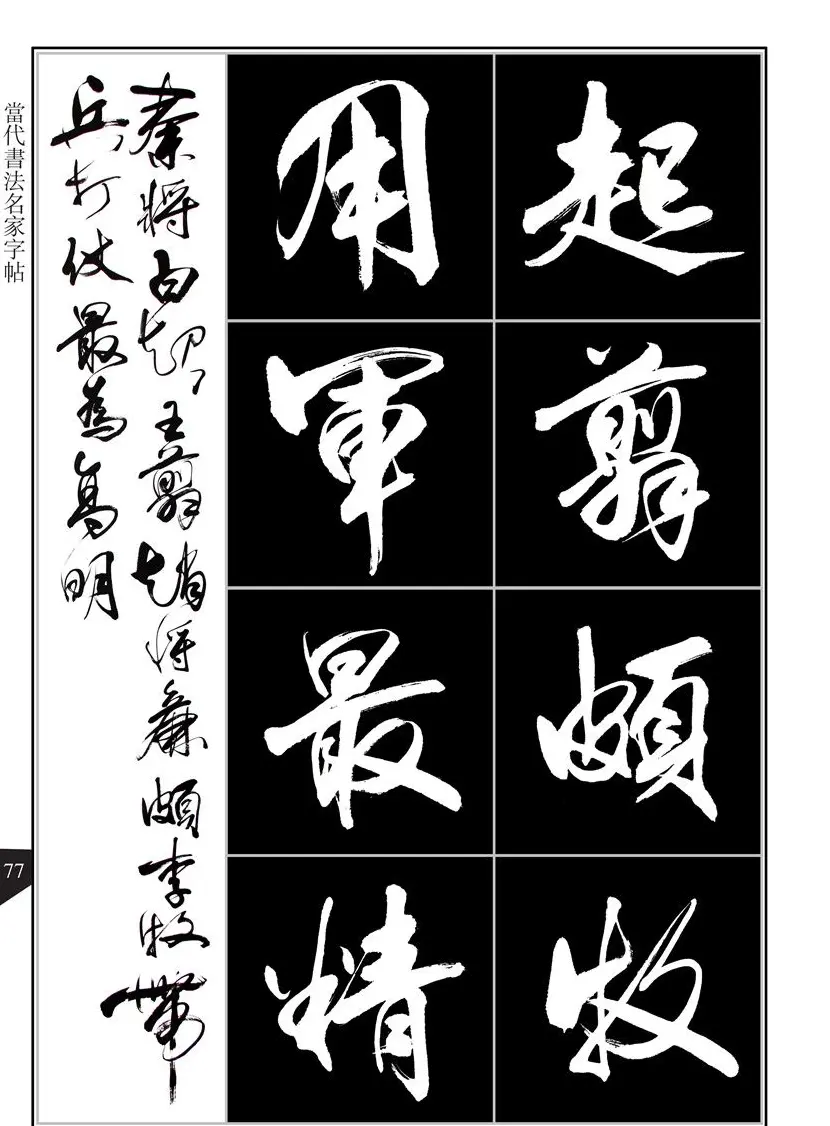 起翦頗牧
用軍最精
秦将白起王翦趙将廉頗李牧帶
兵打仗最為高明
當代書法名家字帖
77